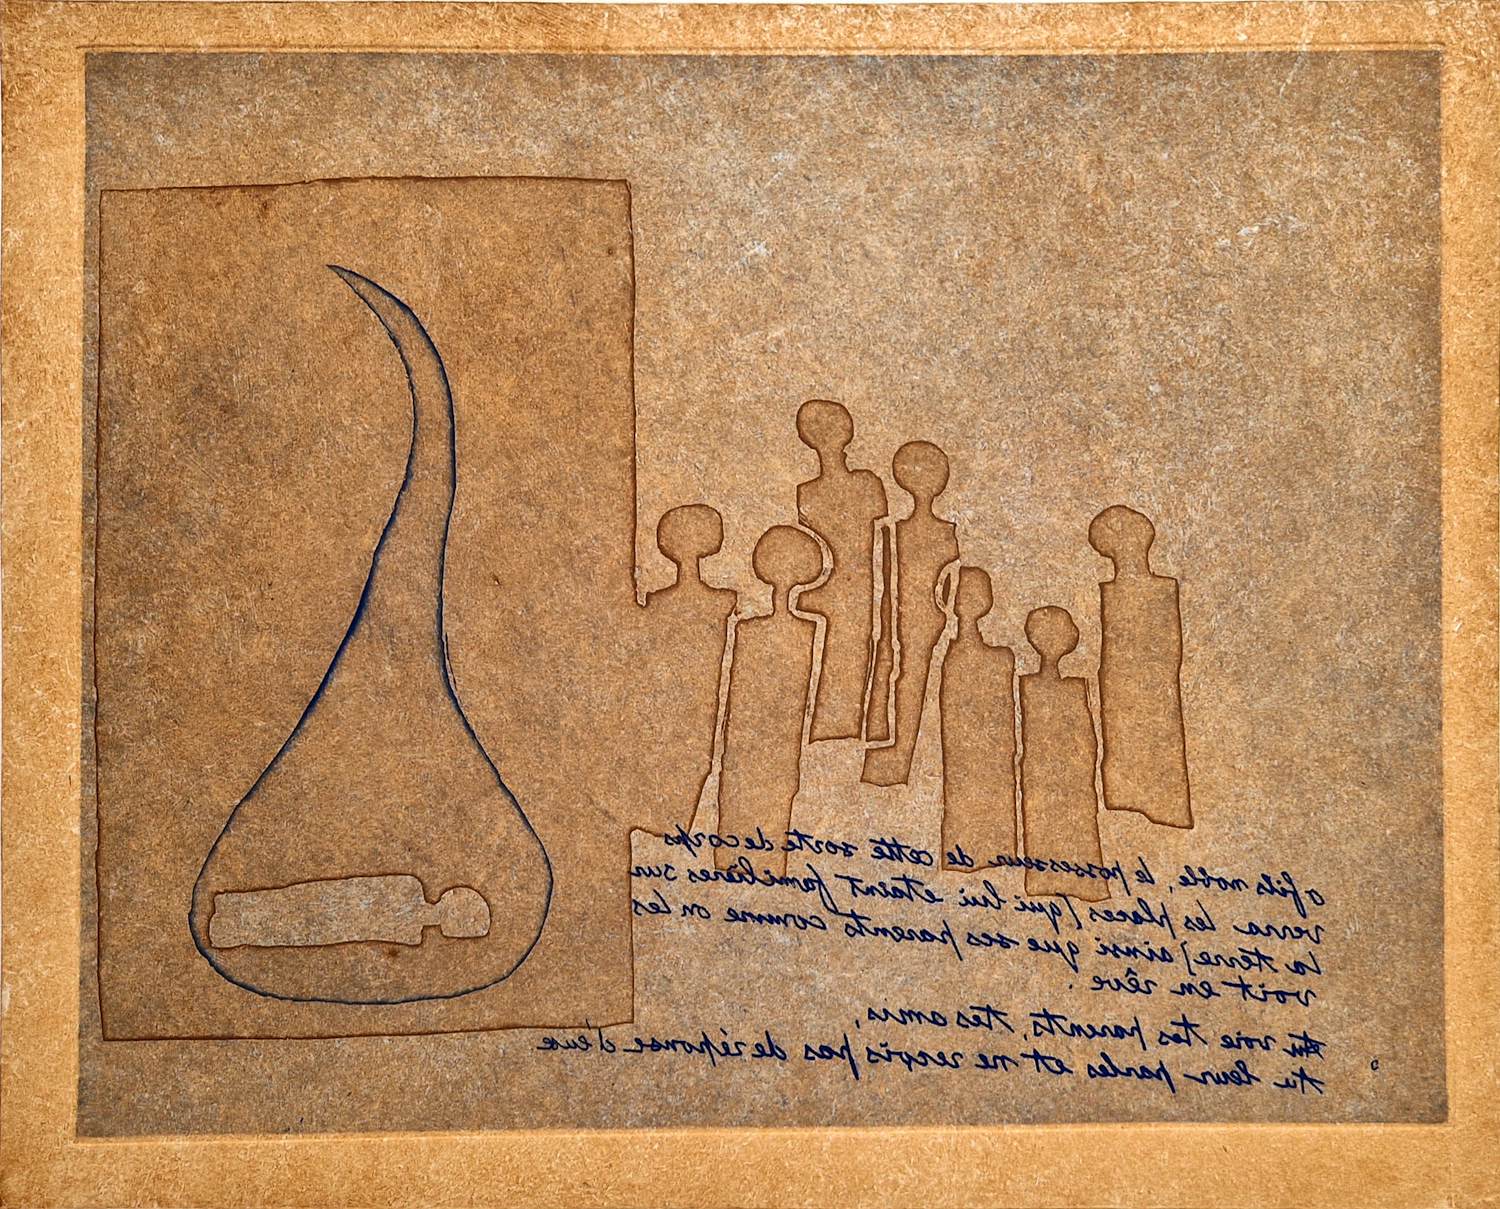 o fils noble, le possesseur de cette sorte de corps
verra les places (qui lui etaint familières sur
la terre) ainsi que ses parents comme on les
voit en rêve.
tu voie tes parents, tes amis,
tu leur parles et ne reçois pas de réponse d'eux